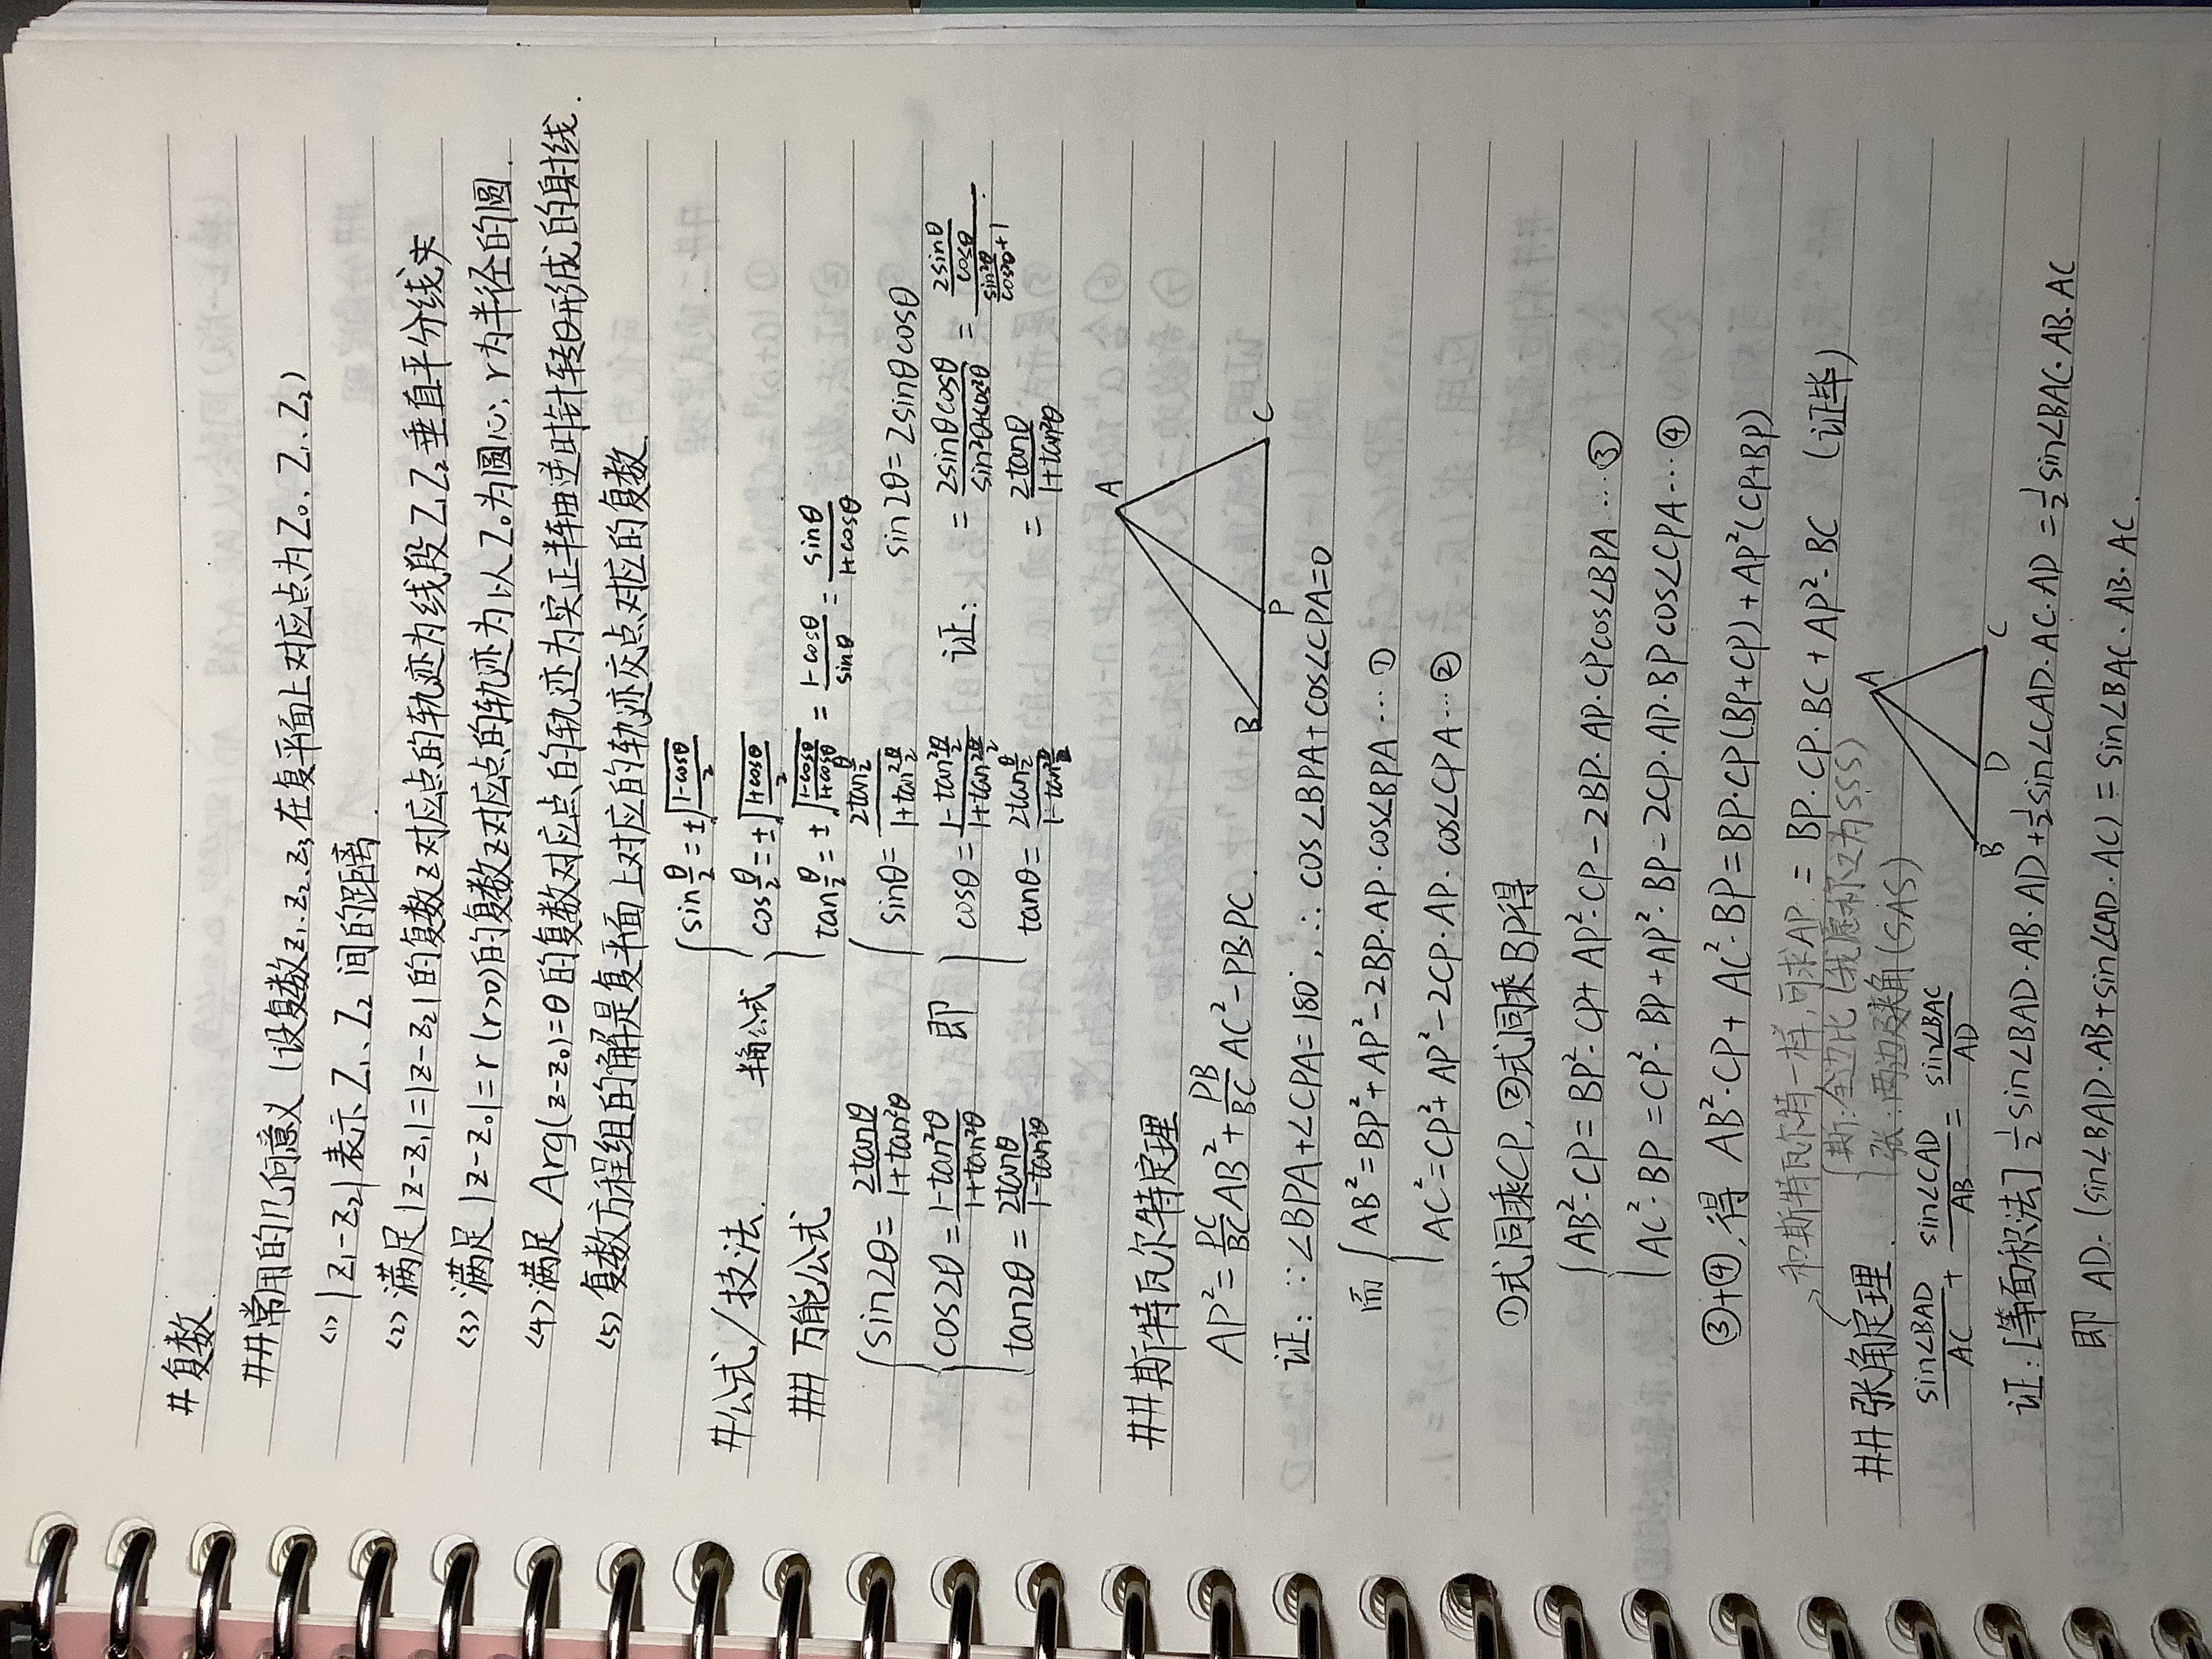 # 复数
## 常用的几何意义 (设复数z₀、z₁、z₂在复平面上对应点为Z₀、Z₁、Z₂)
<1> |z₁-z₂|表示Z₁、Z₂间的距离
<2> 满足|z-z₁|=|z-z₂|的复数z对应点的轨迹为线段Z₁Z₂垂直平分线
<3> 满足|z-z₀|=r(r>0)的复数z对应点的轨迹为以Z₀为圆心,r为半径的圆.
<4> 满足Arg(z-z₀)=θ的复数对应点的轨迹为实正半轴逆时针转θ形成的射线.
<5> 复数方程组的解是复平面上对应的轨迹交点对应的复数
# 公式/技法.
半角公式 { sin θ/2 = ±√((1-cosθ)/2)
cos θ/2 = ±√((1+cosθ)/2)
tan θ/2 = ±√((1-cosθ)/(1+cosθ)) = (1-cosθ)/sinθ = sinθ/(1+cosθ)
## 万能公式
{ sin2θ = 2tanθ/(1+tan²θ)
cos2θ = (1-tan²θ)/(1+tan²θ)
tan2θ = 2tanθ/(1-tan²θ)
即 { sinθ = 2tan(θ/2)/(1+tan²(θ/2))
cosθ = (1-tan²(θ/2))/(1+tan²(θ/2))
tanθ = 2tan(θ/2)/(1-tan²(θ/2))
证: sin2θ = 2sinθcosθ
= 2sinθcosθ/(sin²θ+cos²θ) = (2sinθ/cosθ)/(sin²θ/cos²θ+1)
= 2tanθ/(1+tan²θ)
## 斯特瓦尔特定理
AP² = PC/BC AB² + PB/BC AC² - PB·PC.
A
B
P
C
证: ∵∠BPA+∠CPA=180°, ∴cos∠BPA+cos∠CPA=0
而 { AB²=BP²+AP²-2BP·AP·cos∠BPA…①
AC²=CP²+AP²-2CP·AP·cos∠CPA…②
①式同乘CP, ②式同乘BP得
{ AB²·CP=BP²·CP+AP²·CP-2BP·AP·CPcos∠BPA…③
AC²·BP=CP²·BP+AP²·BP-2CP·AP·BPcos∠CPA…④
③+④,得 AB²·CP+AC²·BP=BP·CP(BP+CP)+AP²(CP+BP)
=BP·CP·BC+AP²·BC (证毕)
和斯特瓦尔特一样,可求AP:
{ 斯:全边比 (我愿称之为SSS)
张:两边及夹角(SAS)
## 张角定理.
sin∠BAD/AC + sin∠CAD/AB = sin∠BAC/AD
A
B
D
C
证:[等面积法] ½sin∠BAD·AB·AD+½sin∠CAD·AC·AD=½sin∠BAC·AB·AC
即 AD·(sin∠BAD·AB+sin∠CAD·AC)=sin∠BAC·AB·AC.